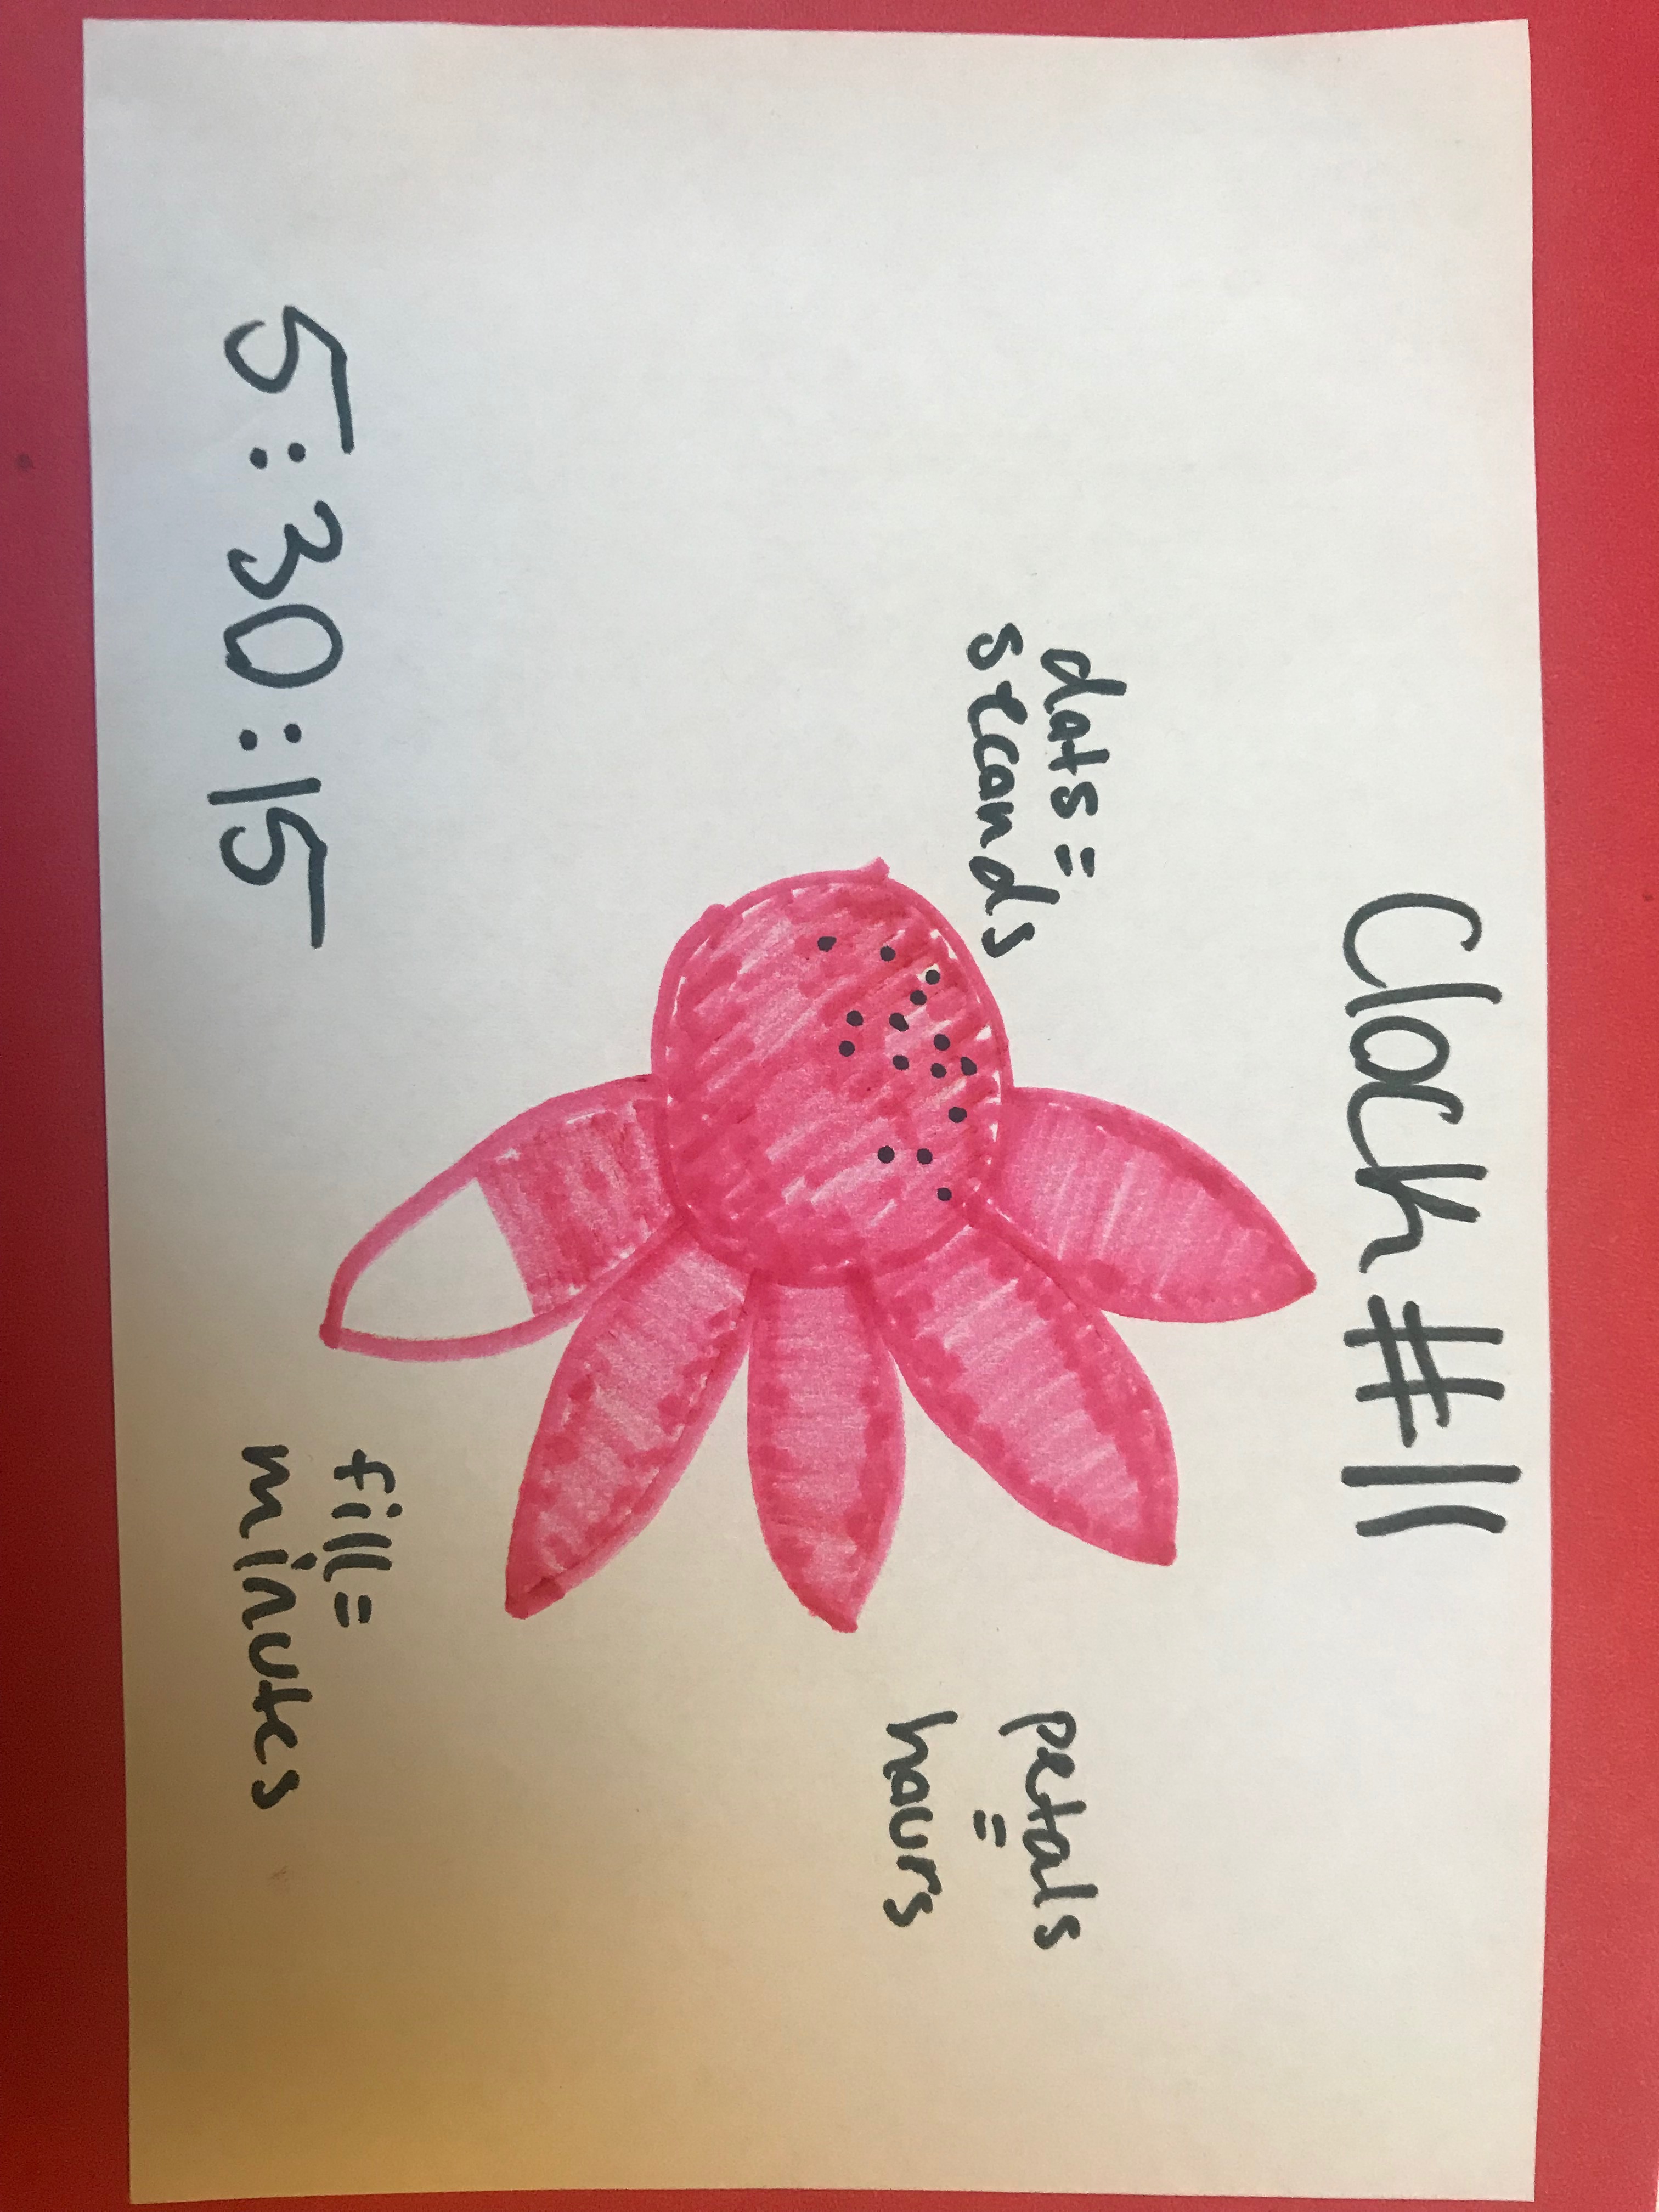 Clock #11
dots =
seconds
petals
=
hours
fill =
minutes
5:30:15